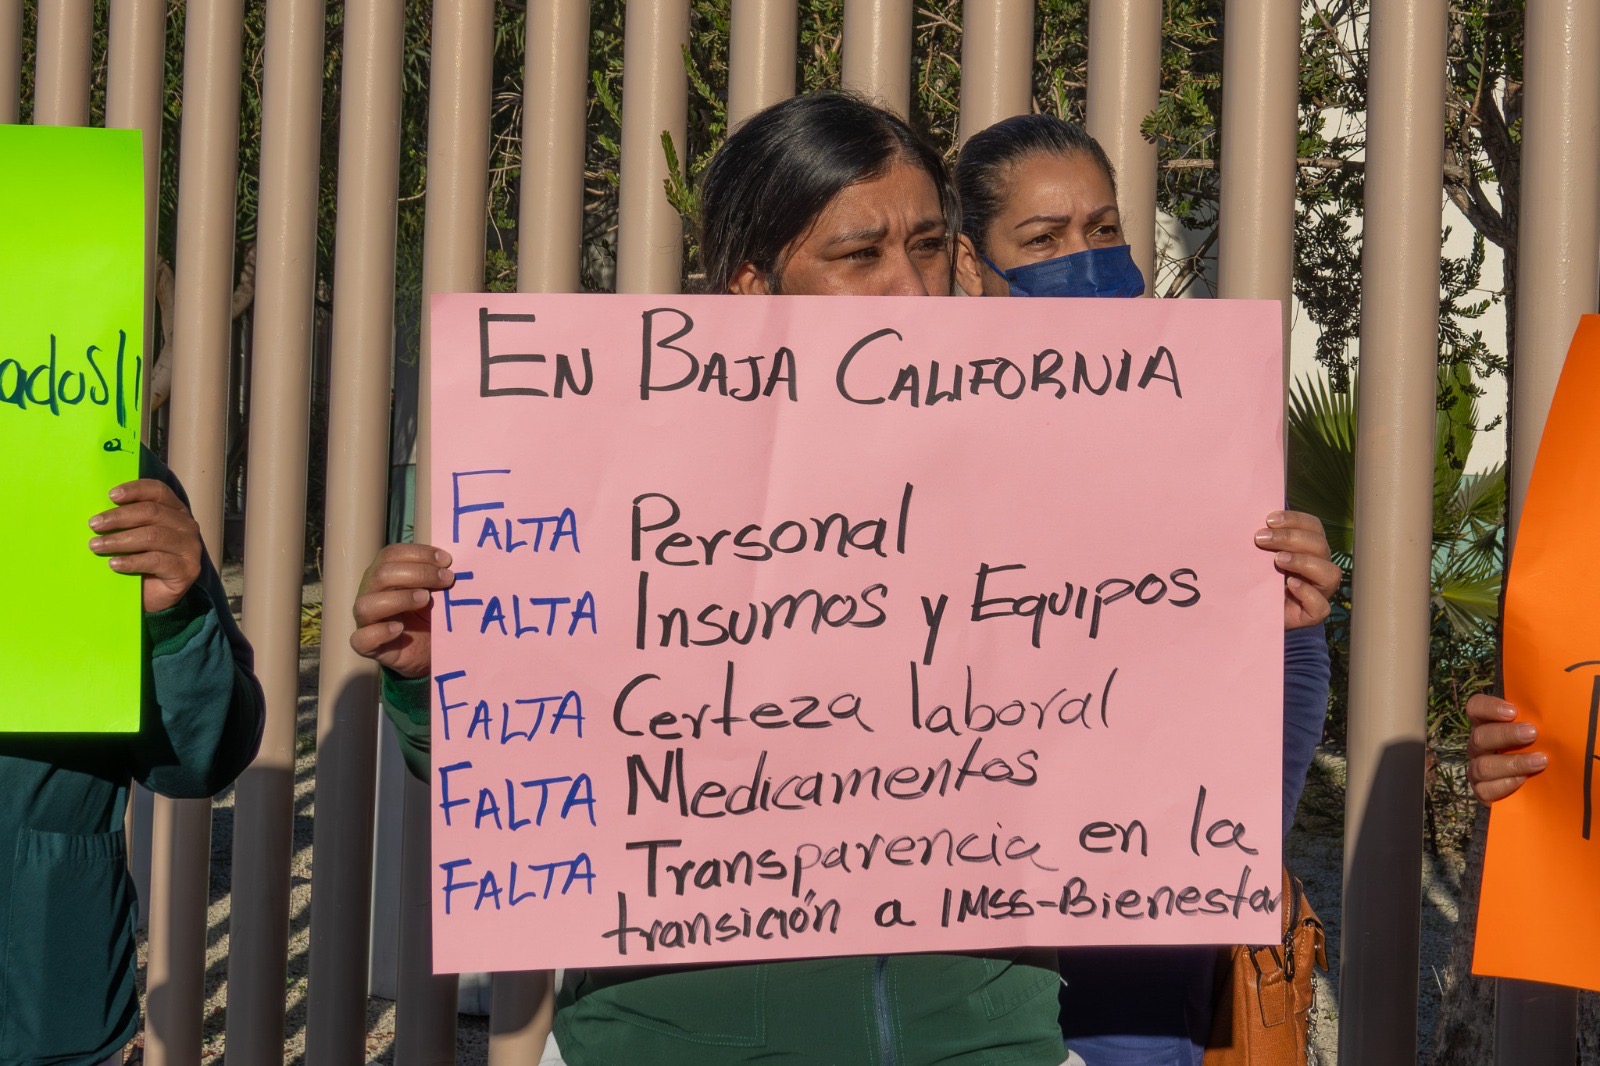 ados!!
EN BAJA CALIFORNIA
FALTA Personal
FALTA Insumos y Equipos
FALTA Certeza laboral
FALTA Medicamentos
FALTA Transparencia en la
transición a IMSS-Bienestar